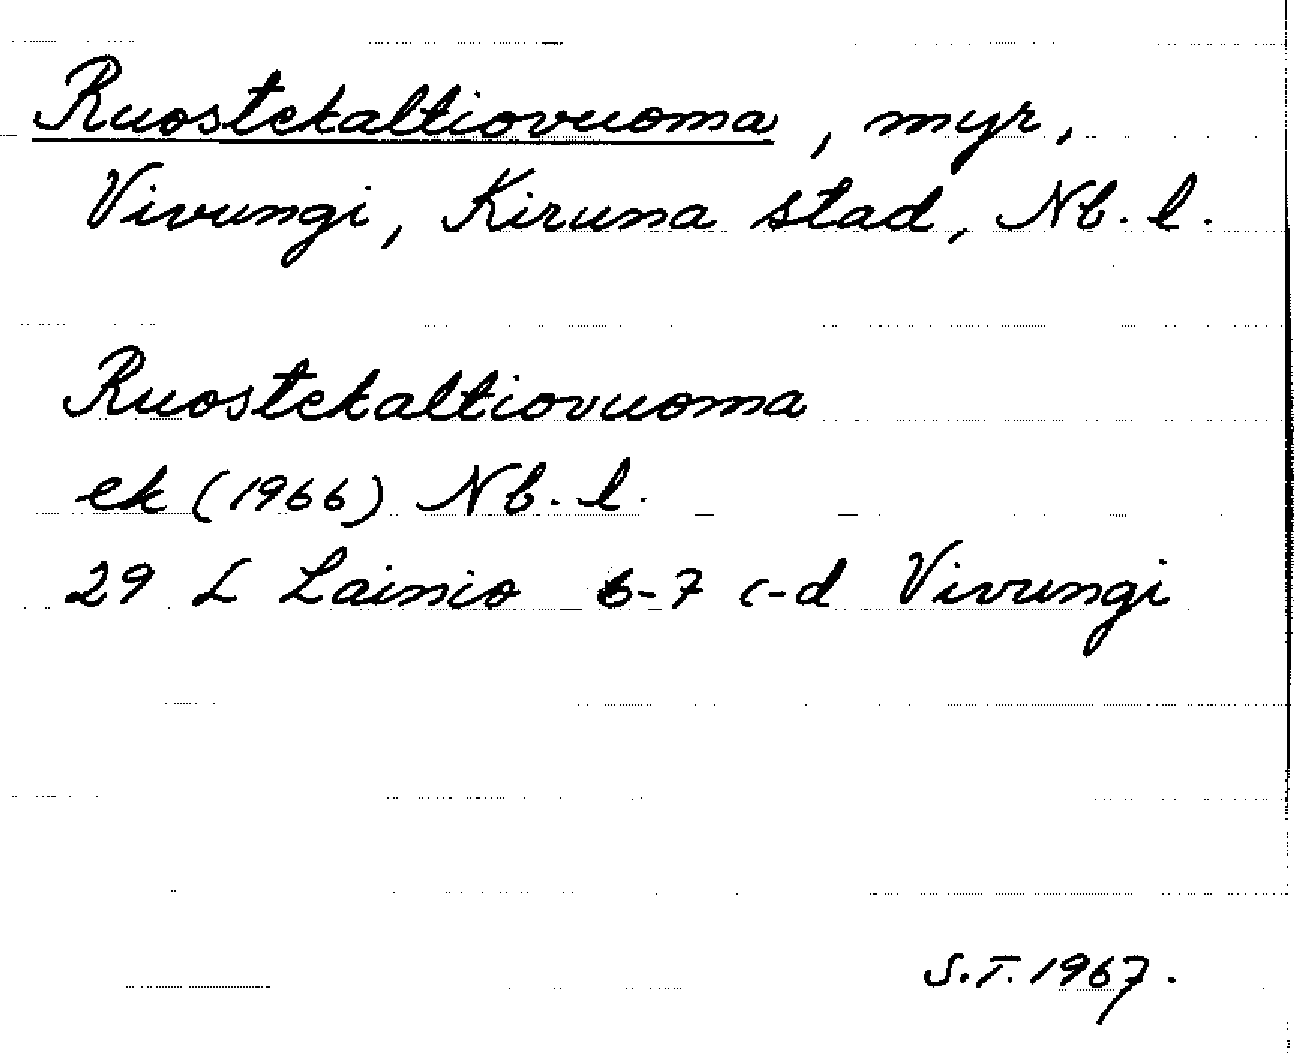 Ruostekaltiovuoma, myr,
Vivungi, Kiruna stad, Nb. l.
Ruostekaltiovuoma
ek (1966) Nb. l.
29 L Lainio 6-7 c-d Vivungi
S.T. 1967.